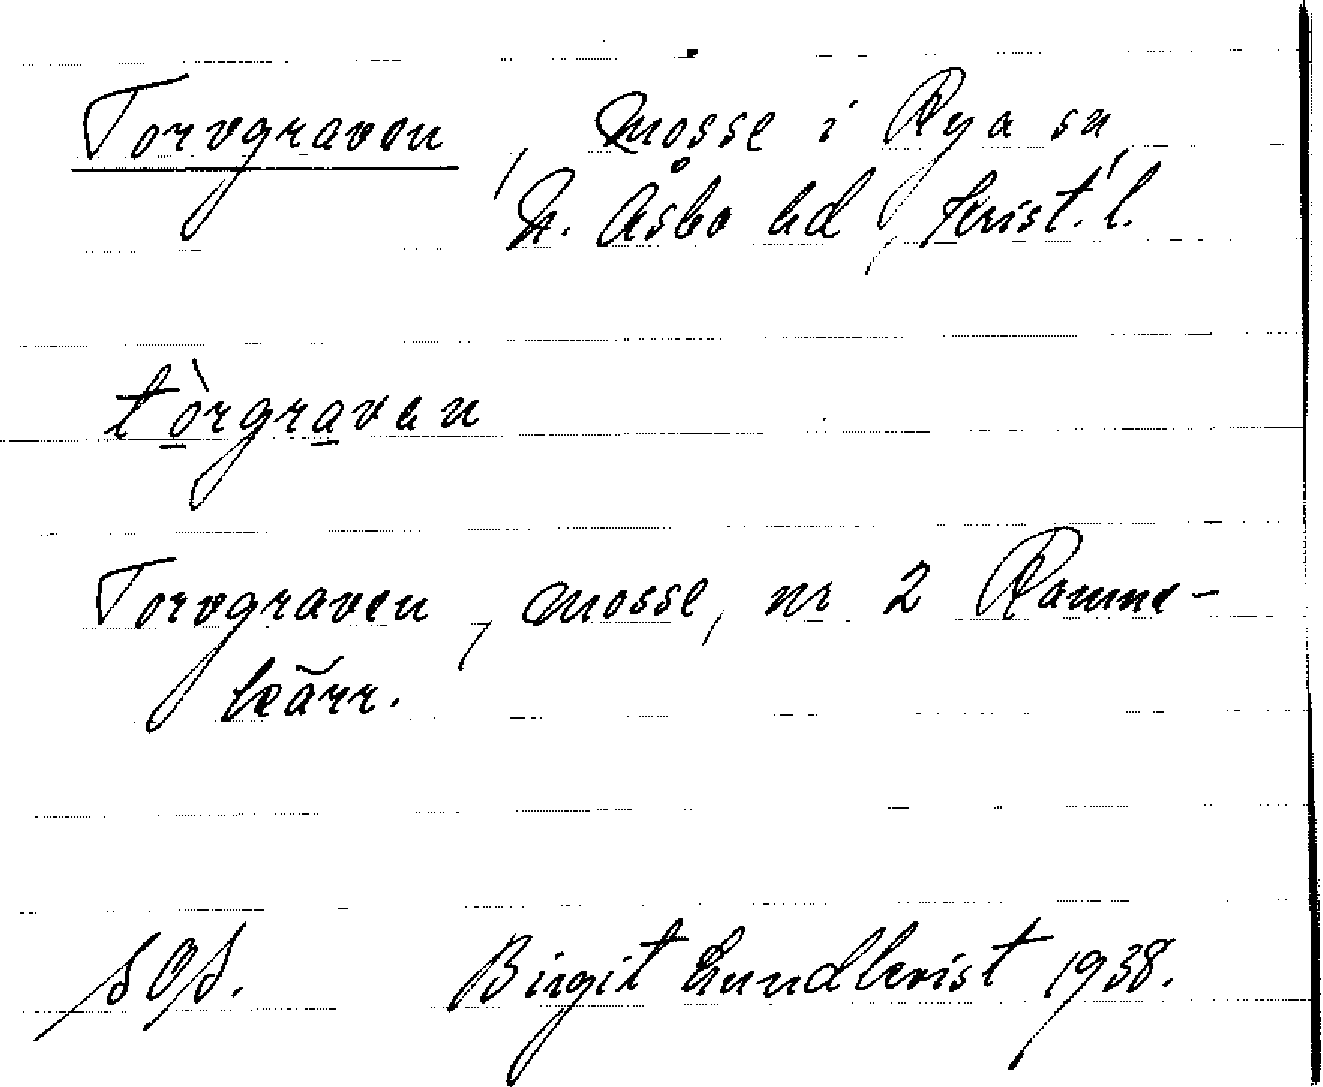 Torvgraven, mosse i Rya sn,
N. Åsbo hd, Krist. l.
tòrgraven
Torvgraven, mosse, nr 2 Ramne-
kärr.
Birgit Lundkvist 1938.